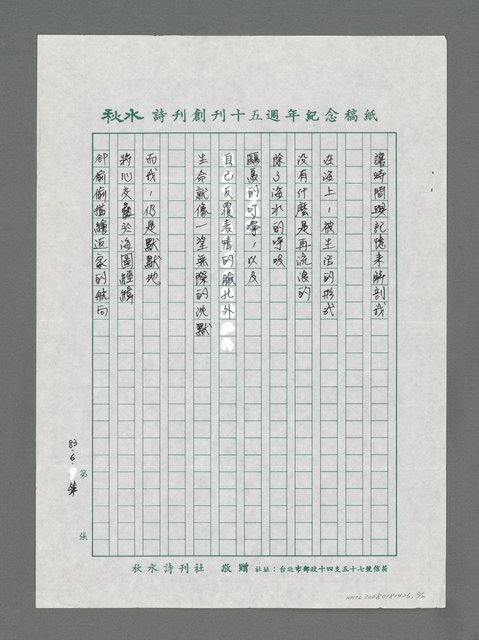 秋水 詩刊創刊十五週年紀念稿紙
讓時間與記憶來解剖我
在海上,被生活的形式
沒有什麼是再流浪的
除了海水的呼吸
鷗鳥的叮嚀,以及
自己反覆表情的臉孔外
生命就像一望無際的沈默
而我,仍是默默地
將心交疊於海圖經緯
卻偷偷描繪返家的航向
83.6.
第 張
秋水詩刊社 敬贈 社址:台北市郵政十四支五十七號信箱